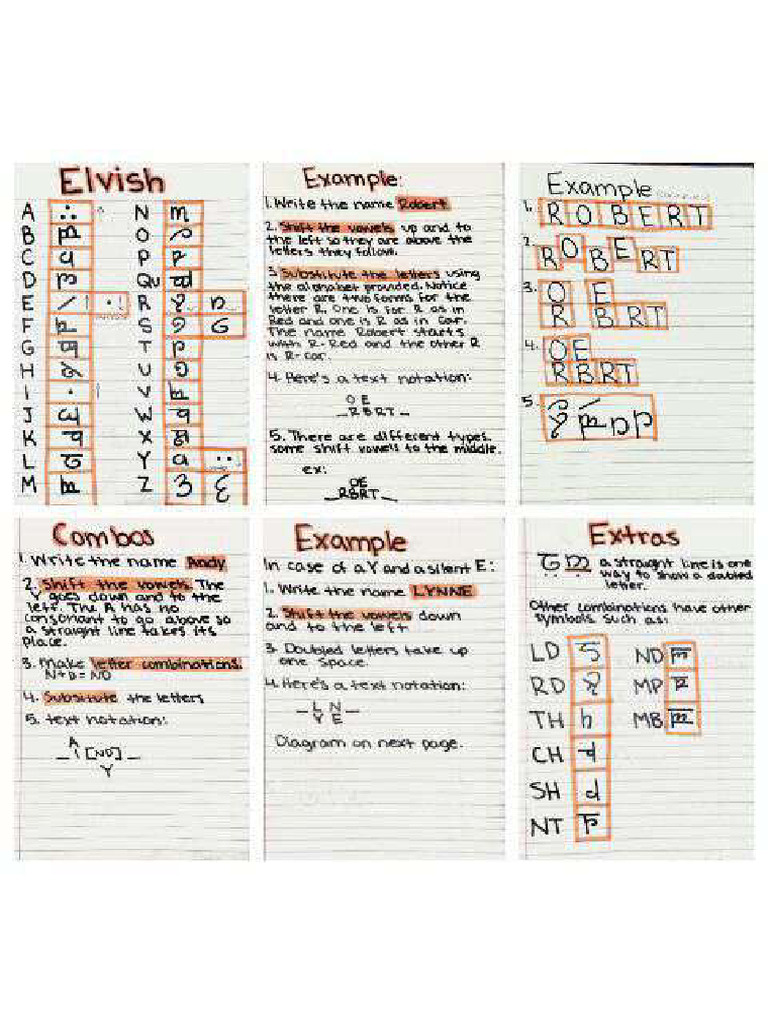 Elvish
A
B
C
D
E
F
G
H
I
J
K
L
M
N
O
P
Qu
R
S
T
U
V
W
X
Y
Z
Example:
1. Write the name Robert
2. Shift the vowels up and to
the left so they are above the
letters they follow.
3. Substitute the letters using
the alphabet provided. Notice
there are two forms for the
letter R. One is for R as in
Red and one is R as in car.
The name Robert starts
with R-Red and the other R
is R-car.
4. Here's a text notation:
O E
_RBRT_
5. There are different types.
some shift vowels to the middle.
ex:
OE
_RBRT_
Example
1. ROBERT
2. ROBERT
3. O E
R BRT
4. OE
RBRT
5.
Combos
1. Write the name Andy
2. Shift the vowels. The
Y goes down and to the
left. The A has no
consonant to go above so
a straight line takes its
place.
3. Make letter combinations.
N+D=ND
4. Substitute the letters
5. text notation:
A
_i[ND]_
Y
Example
In case of a Y and a silent E:
1. Write the name LYNNE
2. Shift the vowels down
and to the left
3. Doubled letters take up
one space.
4. Here's a text notation:
_L N_
Y E
Diagram on next page.
Extras
a straight line is one
way to show a doubled
letter.
Other combinations have other
symbols such as:
LD
RD
TH
CH
SH
NT
ND
MP
MB